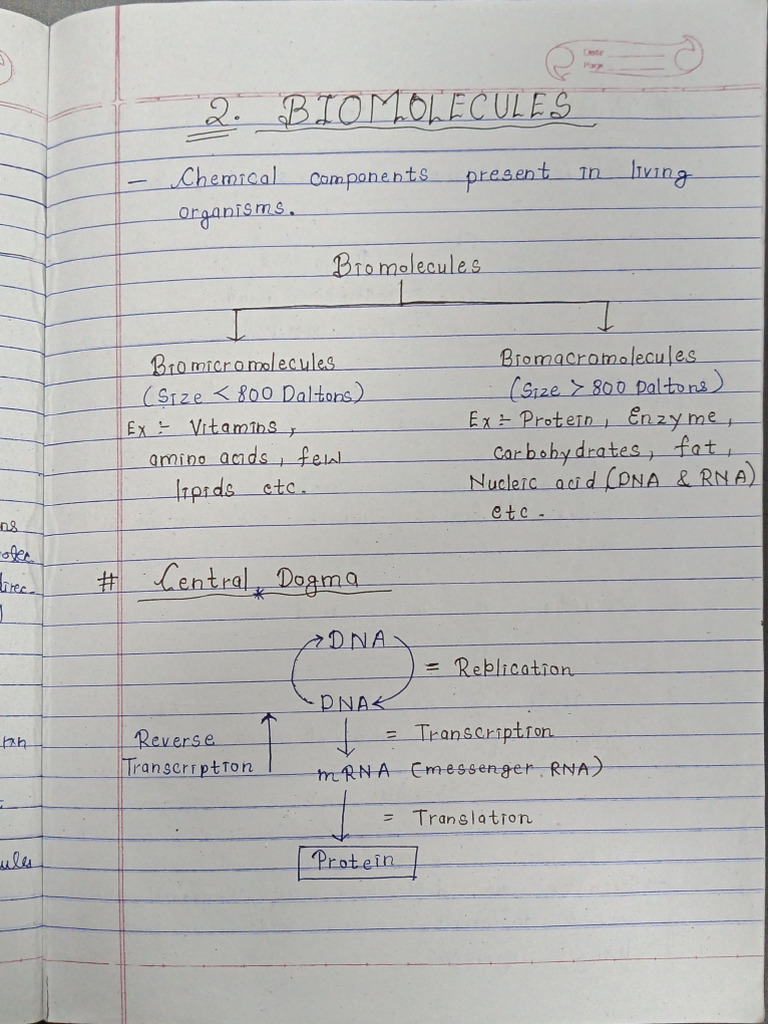 Date
Page
2. BIOMOLECULES
- Chemical components present in living
organisms.
Biomolecules
Biomicromolecules
(Size < 800 Daltons)
Ex :- Vitamins,
amino acids, few
lipids etc.
Biomacromolecules
(Size > 800 Daltons)
Ex :- Protein, Enzyme,
carbohydrates, fat,
Nucleic acid (DNA & RNA)
etc.
# Central * Dogma
DNA
= Replication
DNA
= Transcription
Reverse
Transcription
mRNA (messenger RNA)
= Translation
Protein
ules